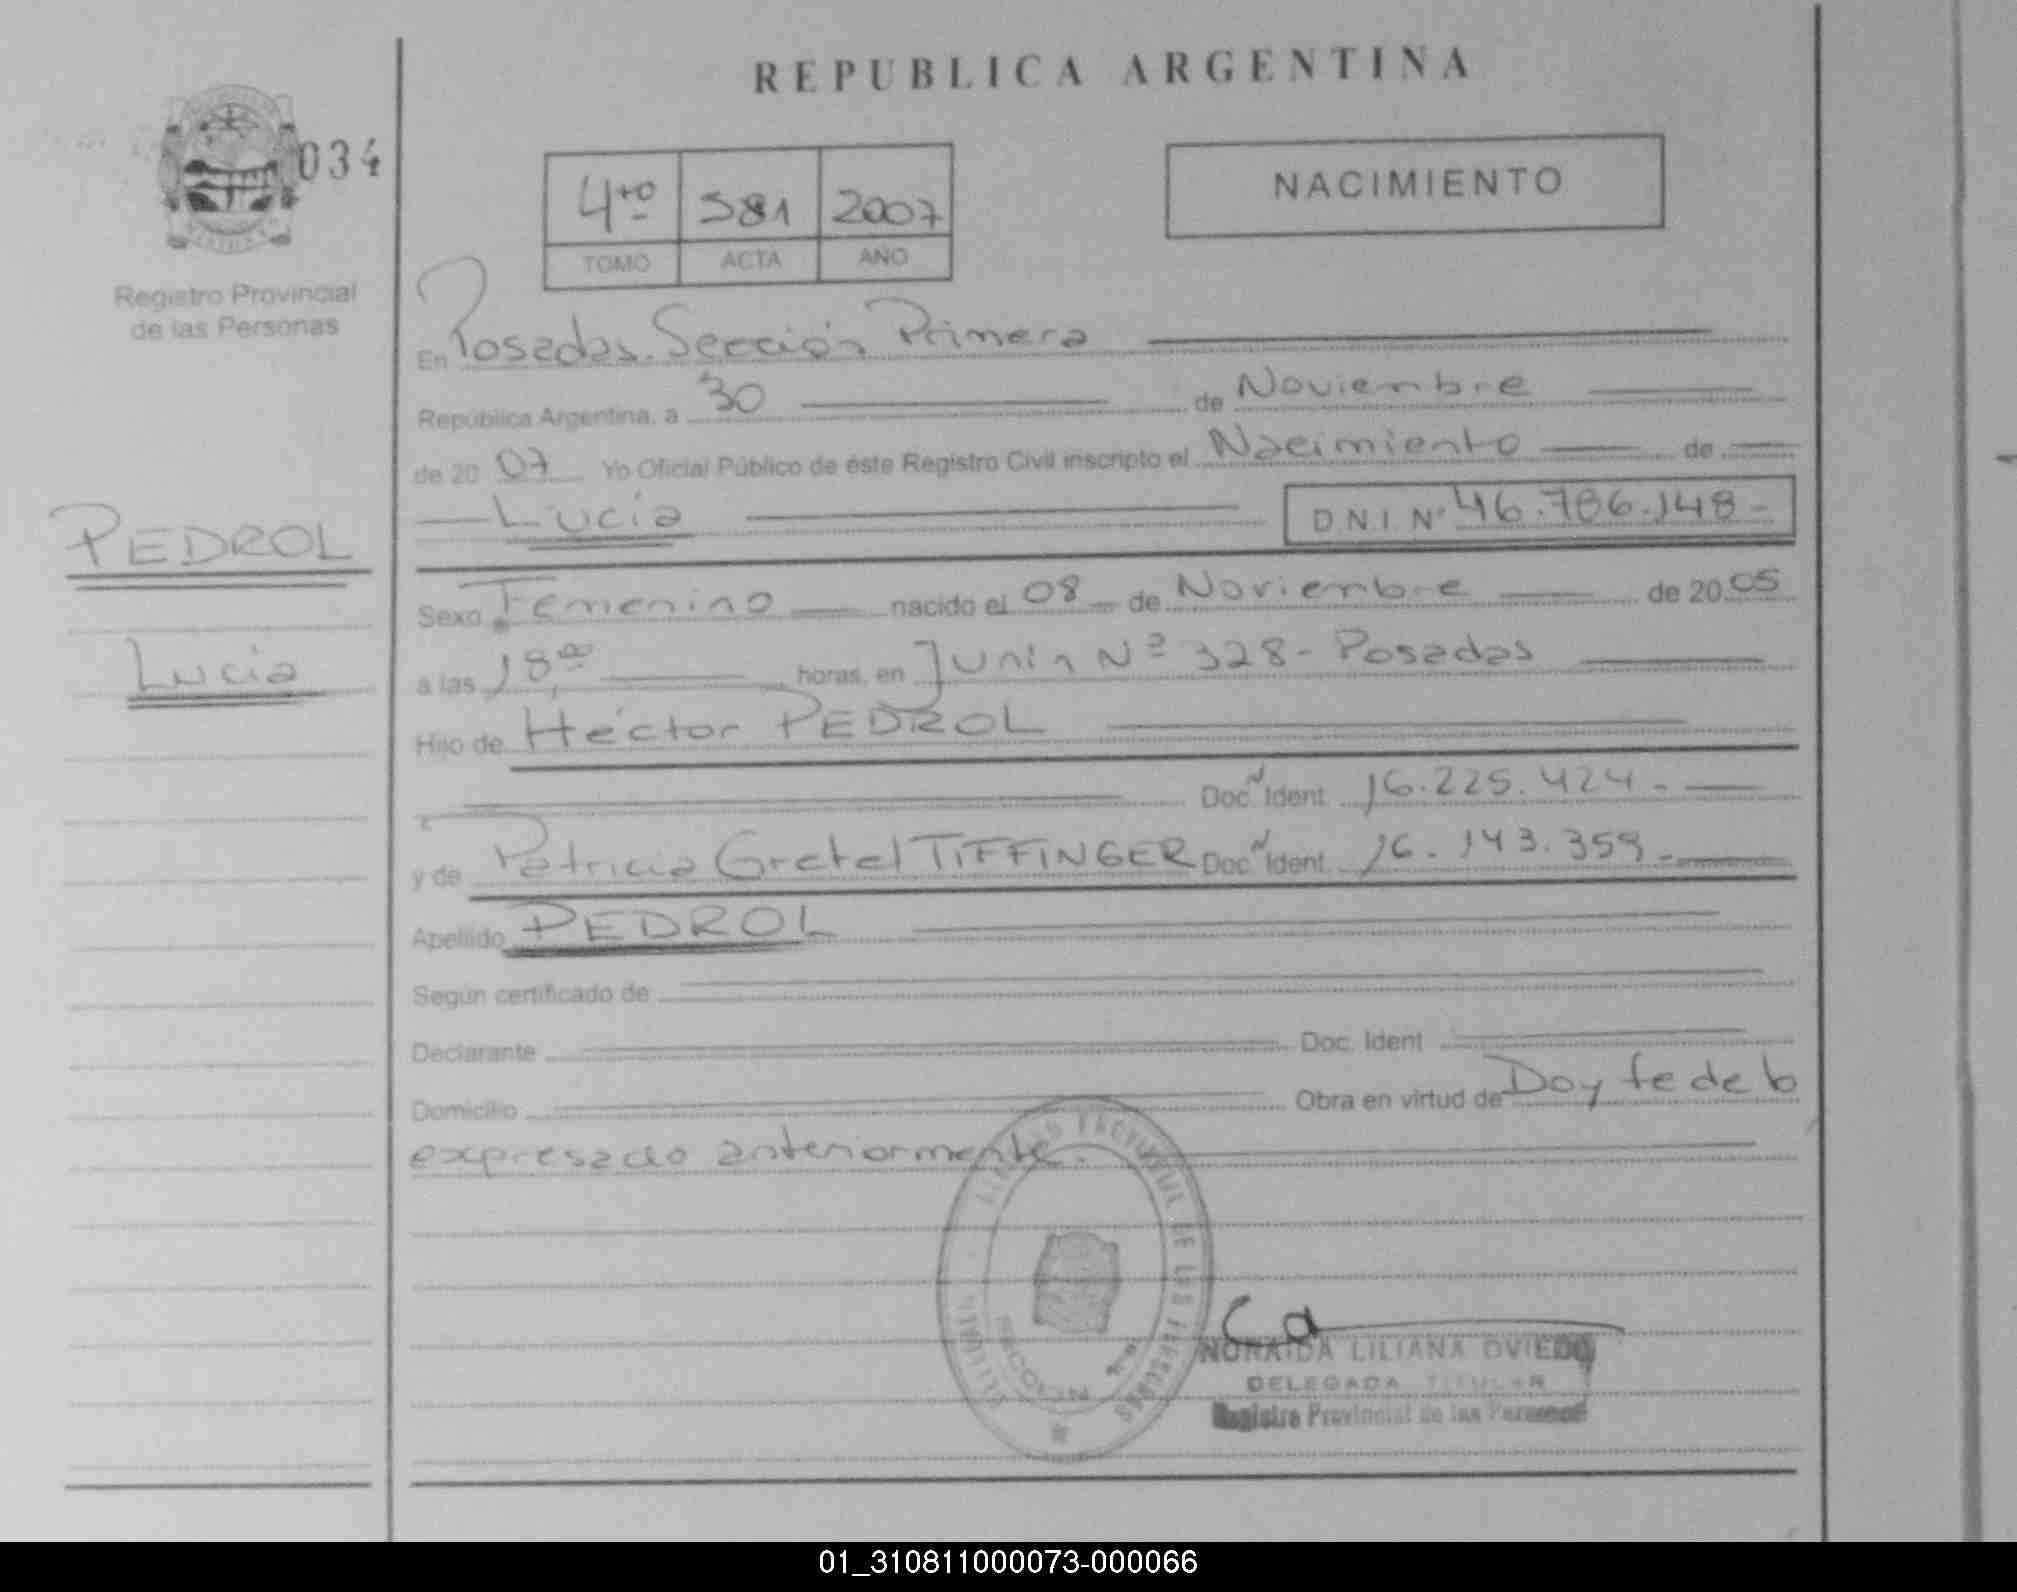 REPUBLICA ARGENTINA
034
Registro Provincial
de las Personas
4to 581 2007
TOMO ACTA AÑO
NACIMIENTO
En Posadas. Sección Primera
República Argentina, a 30 de Noviembre
de 20 07 Yo Oficial Público de éste Registro Civil inscripto el Nacimiento de
Lucía
D.N.I. Nº 46.786.148-
PEDROL
Lucía
Sexo Femenino nacido el 08 de Noviembre de 20 05
a las 18 00 horas, en Junín Nº 328 - Posadas
Hijo de Héctor PEDROL
Doc. Ident. 16.225.424-
y de Patricia Gretel TIFFINGER Doc. Ident. 16.143.359-
Apellido PEDROL
Según certificado de
Declarante Doc. Ident
Domicilio Obra en virtud de Doy fe de lo
expresado anteriormente.
REGISTRO PROVINCIAL DE LAS PERSONAS
SECCION 1ra
NORAIDA LILIANA OVIEDO
DELEGADA TITULAR
Registro Provincial de las Personas
01_310811000073-000066